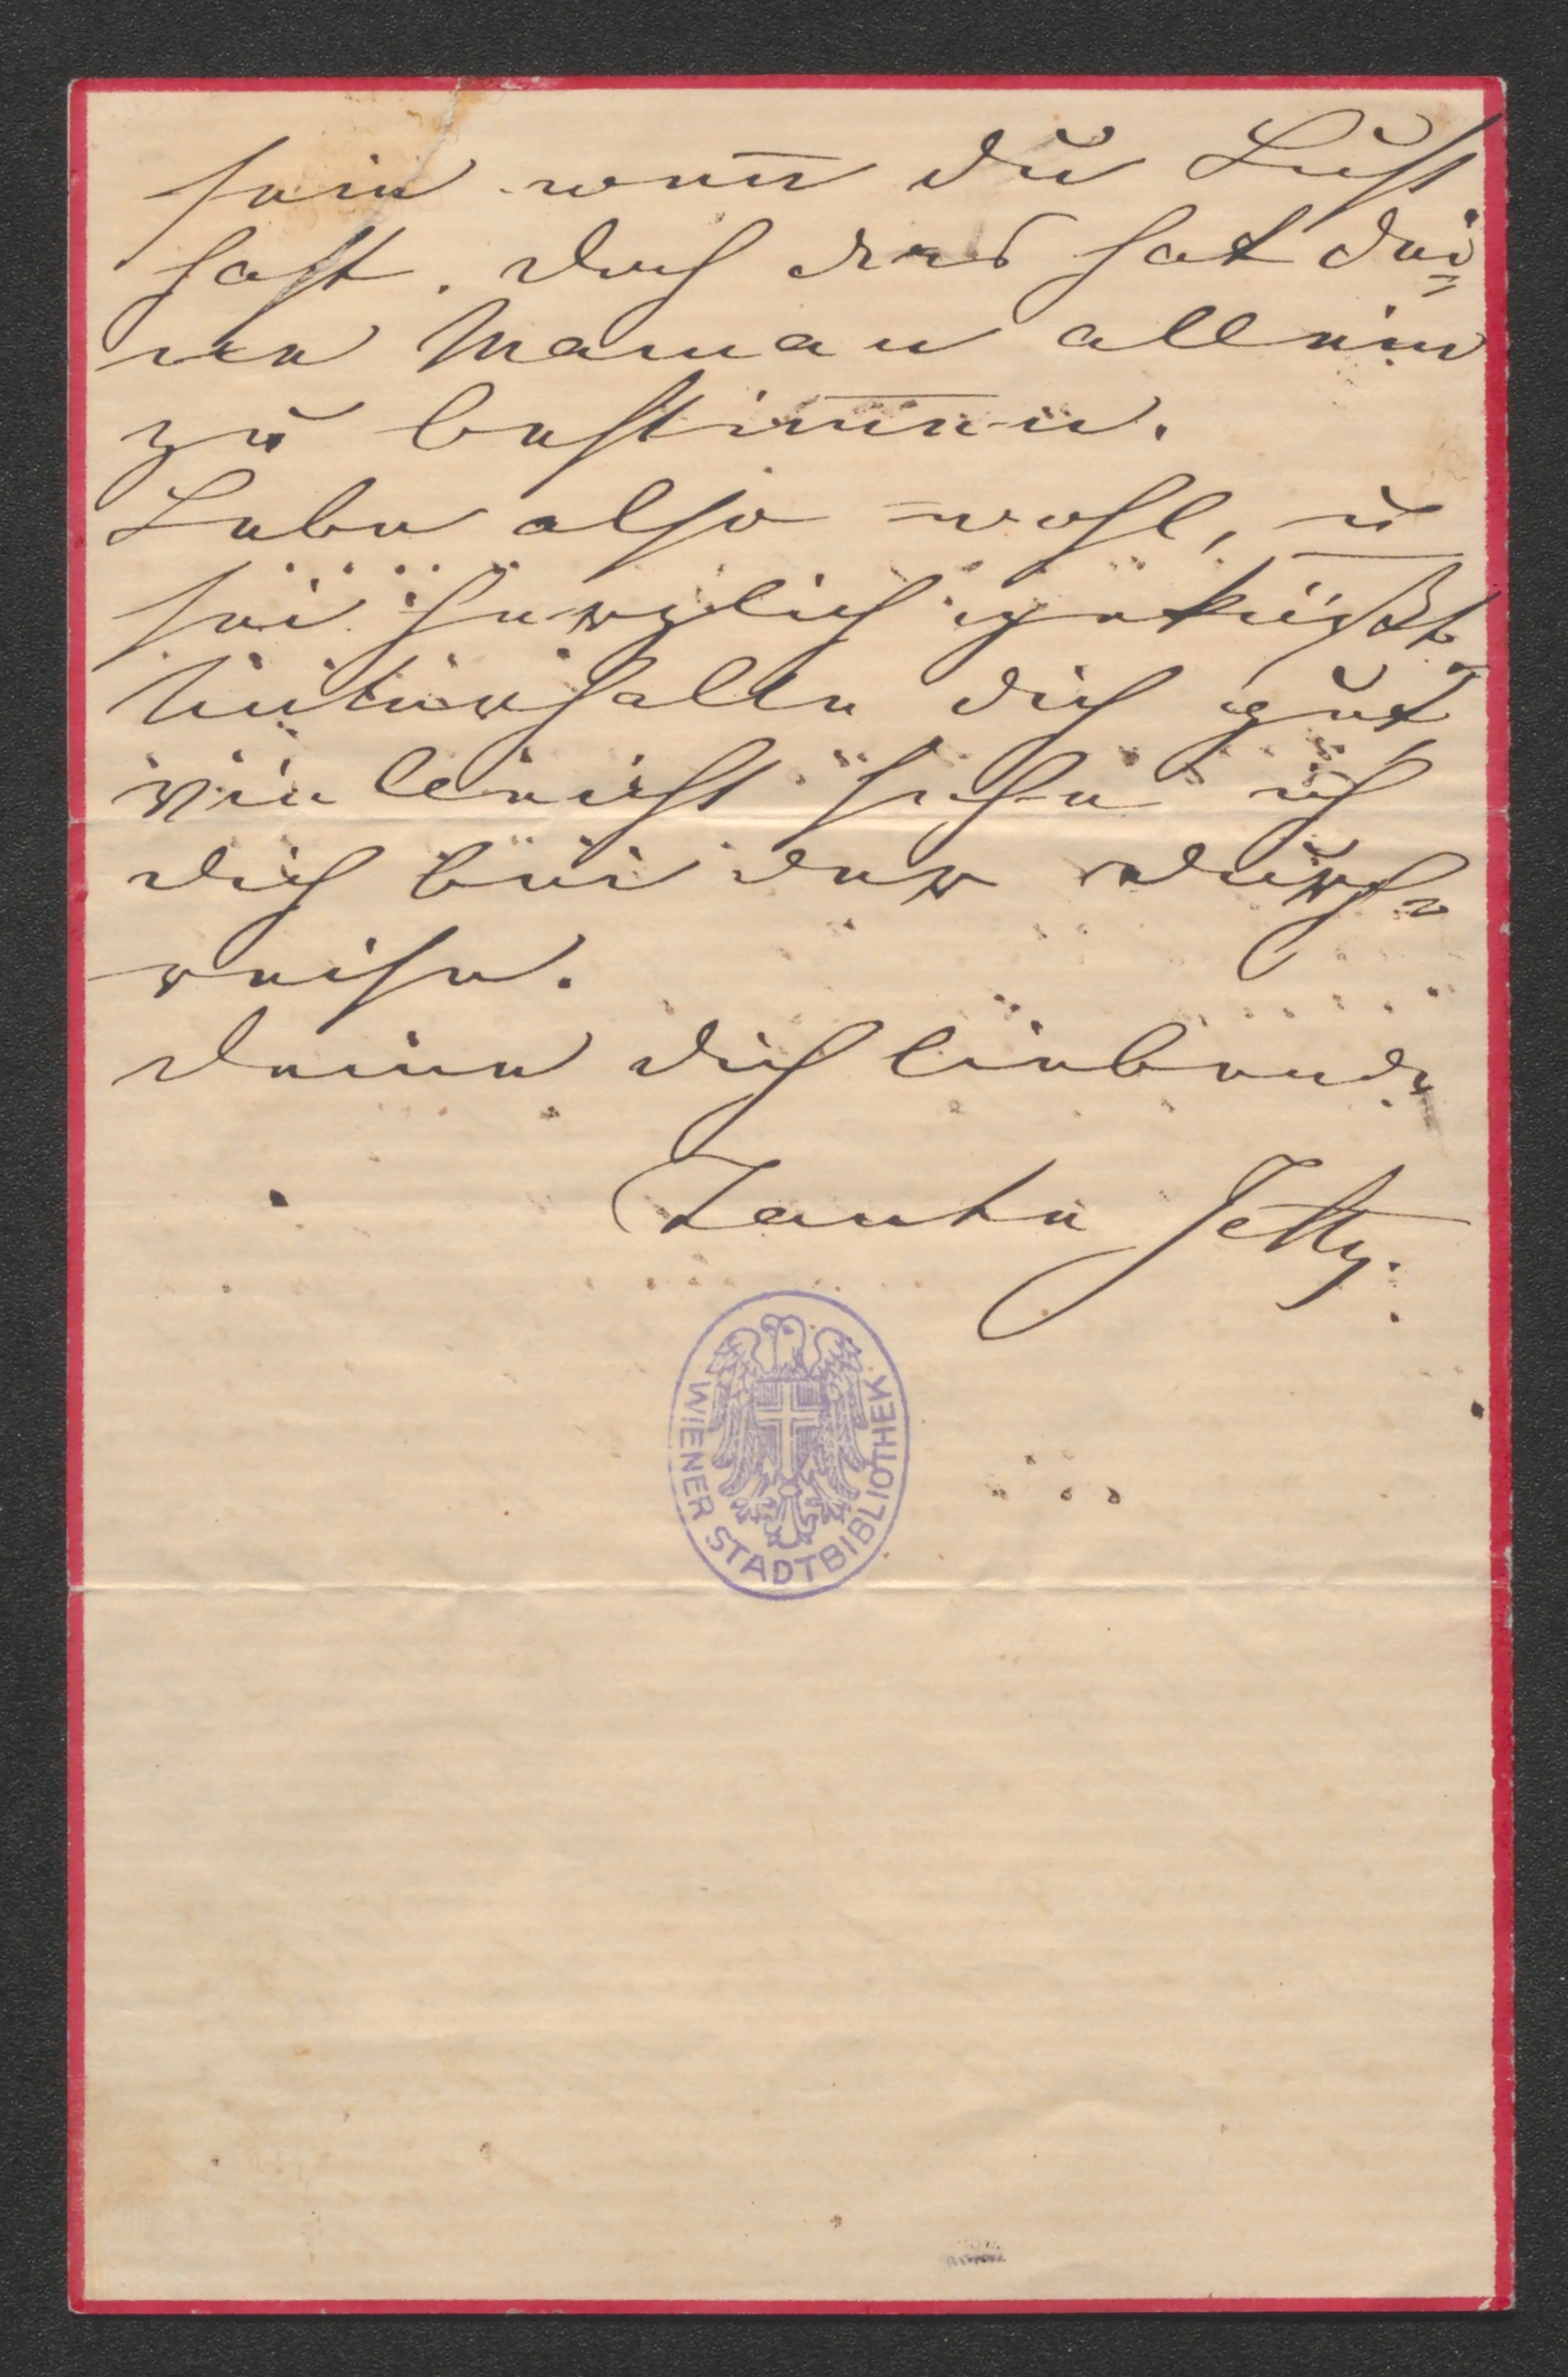 sein weñ du Lust
hast. Doch das hat dei=
ne Maman allein
zu bestim̅en.
Lebe also wohl, u
sei herzlich geküßt.
Unterhalte dich gut,
vielleicht sehe ich
dich bei der Durch=
reise.
Deine dich liebende
Tante Jetty.
WIENER STADTBIBLIOTHEK